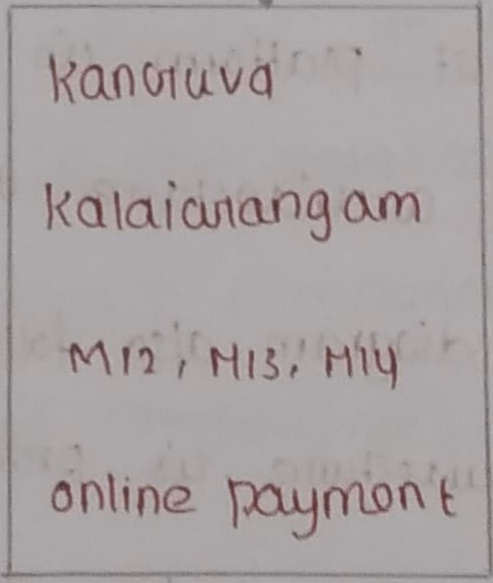 Kanguva
Kalaiarangam
M12, M13, M14
online payment